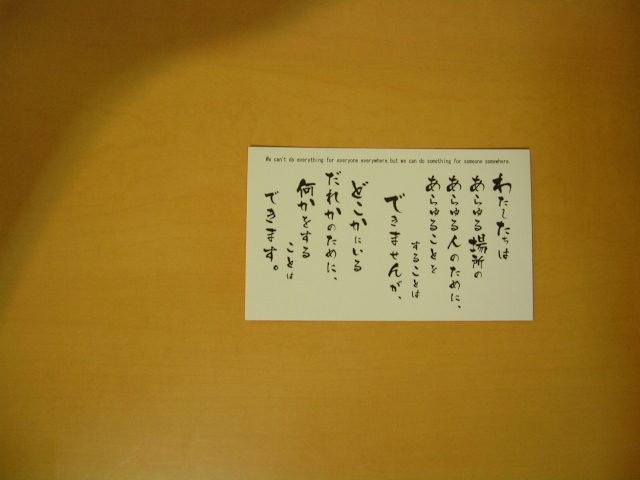 We can't do everything for everyone everywhere.but we can do something for someone somewhere.
わたしたちは
あらゆる場所の
あらゆる人のために、
あらゆることを
することは
できませんが、
どこかにいる
だれかのために、
何かをする
ことは
できます。